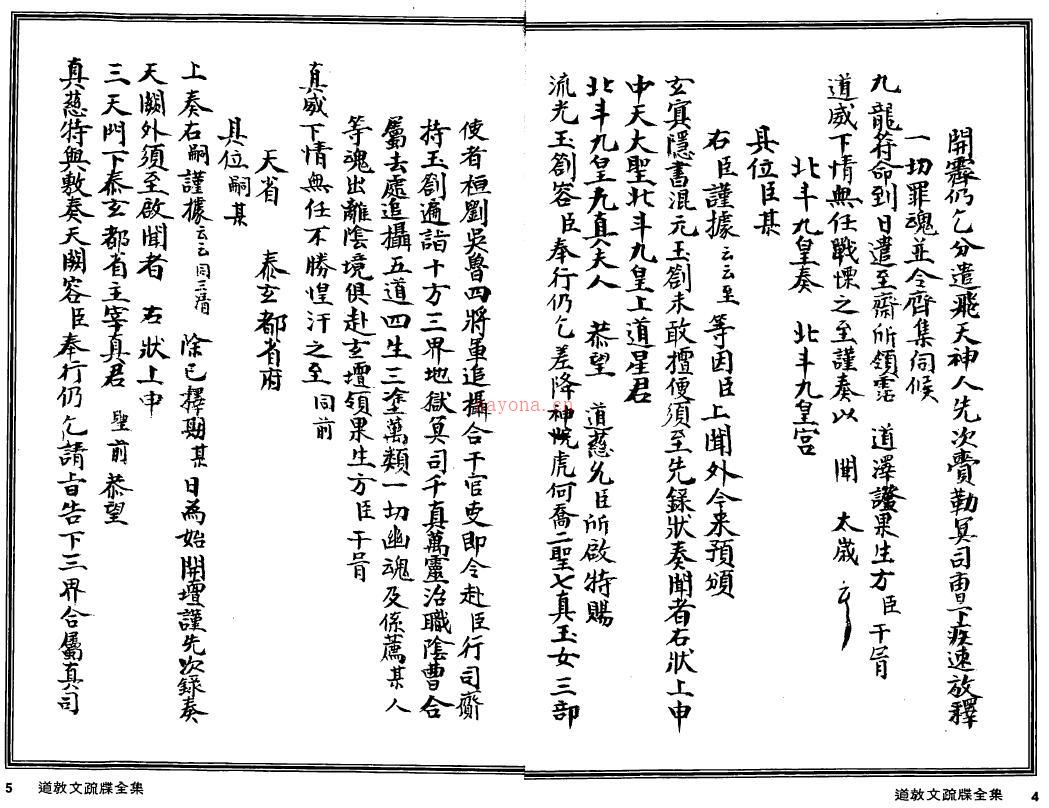 開霽仍乞分遣飛天神人先次賫勒冥司曹下疾速放釋
一切罪魂並令齊集伺候
九龍符命到日遣至齋所領霑 道澤證果生方臣干冒
道威下情無任戰慄之至謹奏以 聞 太歲
北斗九皇奏 北斗九皇宮
具位臣某
右臣謹據云云至 等因臣上聞外今來預頒
玄寘隱書混元玉劄未敢擅便須至先錄狀奏聞者右狀上申
中天大聖北斗九皇上道星君
北斗九皇九真夫人 恭望 道慈允臣所啟特賜
流光玉劄容臣奉行仍乞差降神虎何喬二聖七真玉女三部
使者桓劉吳魯四將軍追攝合干官吏即令赴臣行司齎
持玉劄遍詣十方三界地獄冥司千真萬靈治職陰曹合
屬去處追攝五道四生三塗萬類一切幽魂及係薦某人
等魂出離陰境俱赴玄壇領果生方臣干冒
真威下情無任不勝惶汗之至 同前
天省 泰玄都省府
具位嗣某
上奏右嗣謹據云云同三清 除已擇期某日為始開壇謹先次錄奏
天闕外須至啟聞者 右狀上申
三天門下泰玄都省主宰真君 聖前恭望
真慈特與敷奏天闕容臣奉行仍乞請旨告下三界合屬真司
nayona.cn
5 道教文疏牒全集
道教文疏牒全集 4